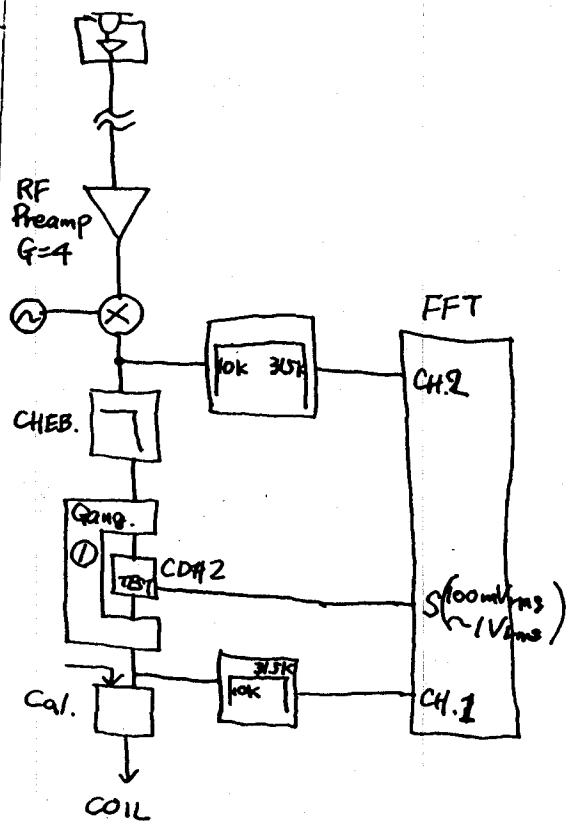 RF
Preamp
G=4
FFT
10K 31.5K
CH.2
CHEB.
Gang.
1
CDA2
TEST
S(100mVrms
~1Vrms)
31.5K
10K
CH.1
Cal.
COIL